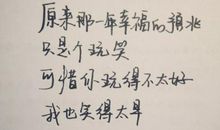 原来那一年幸福的预兆
只是个玩笑
可惜你玩得不太好
我也笑得太早